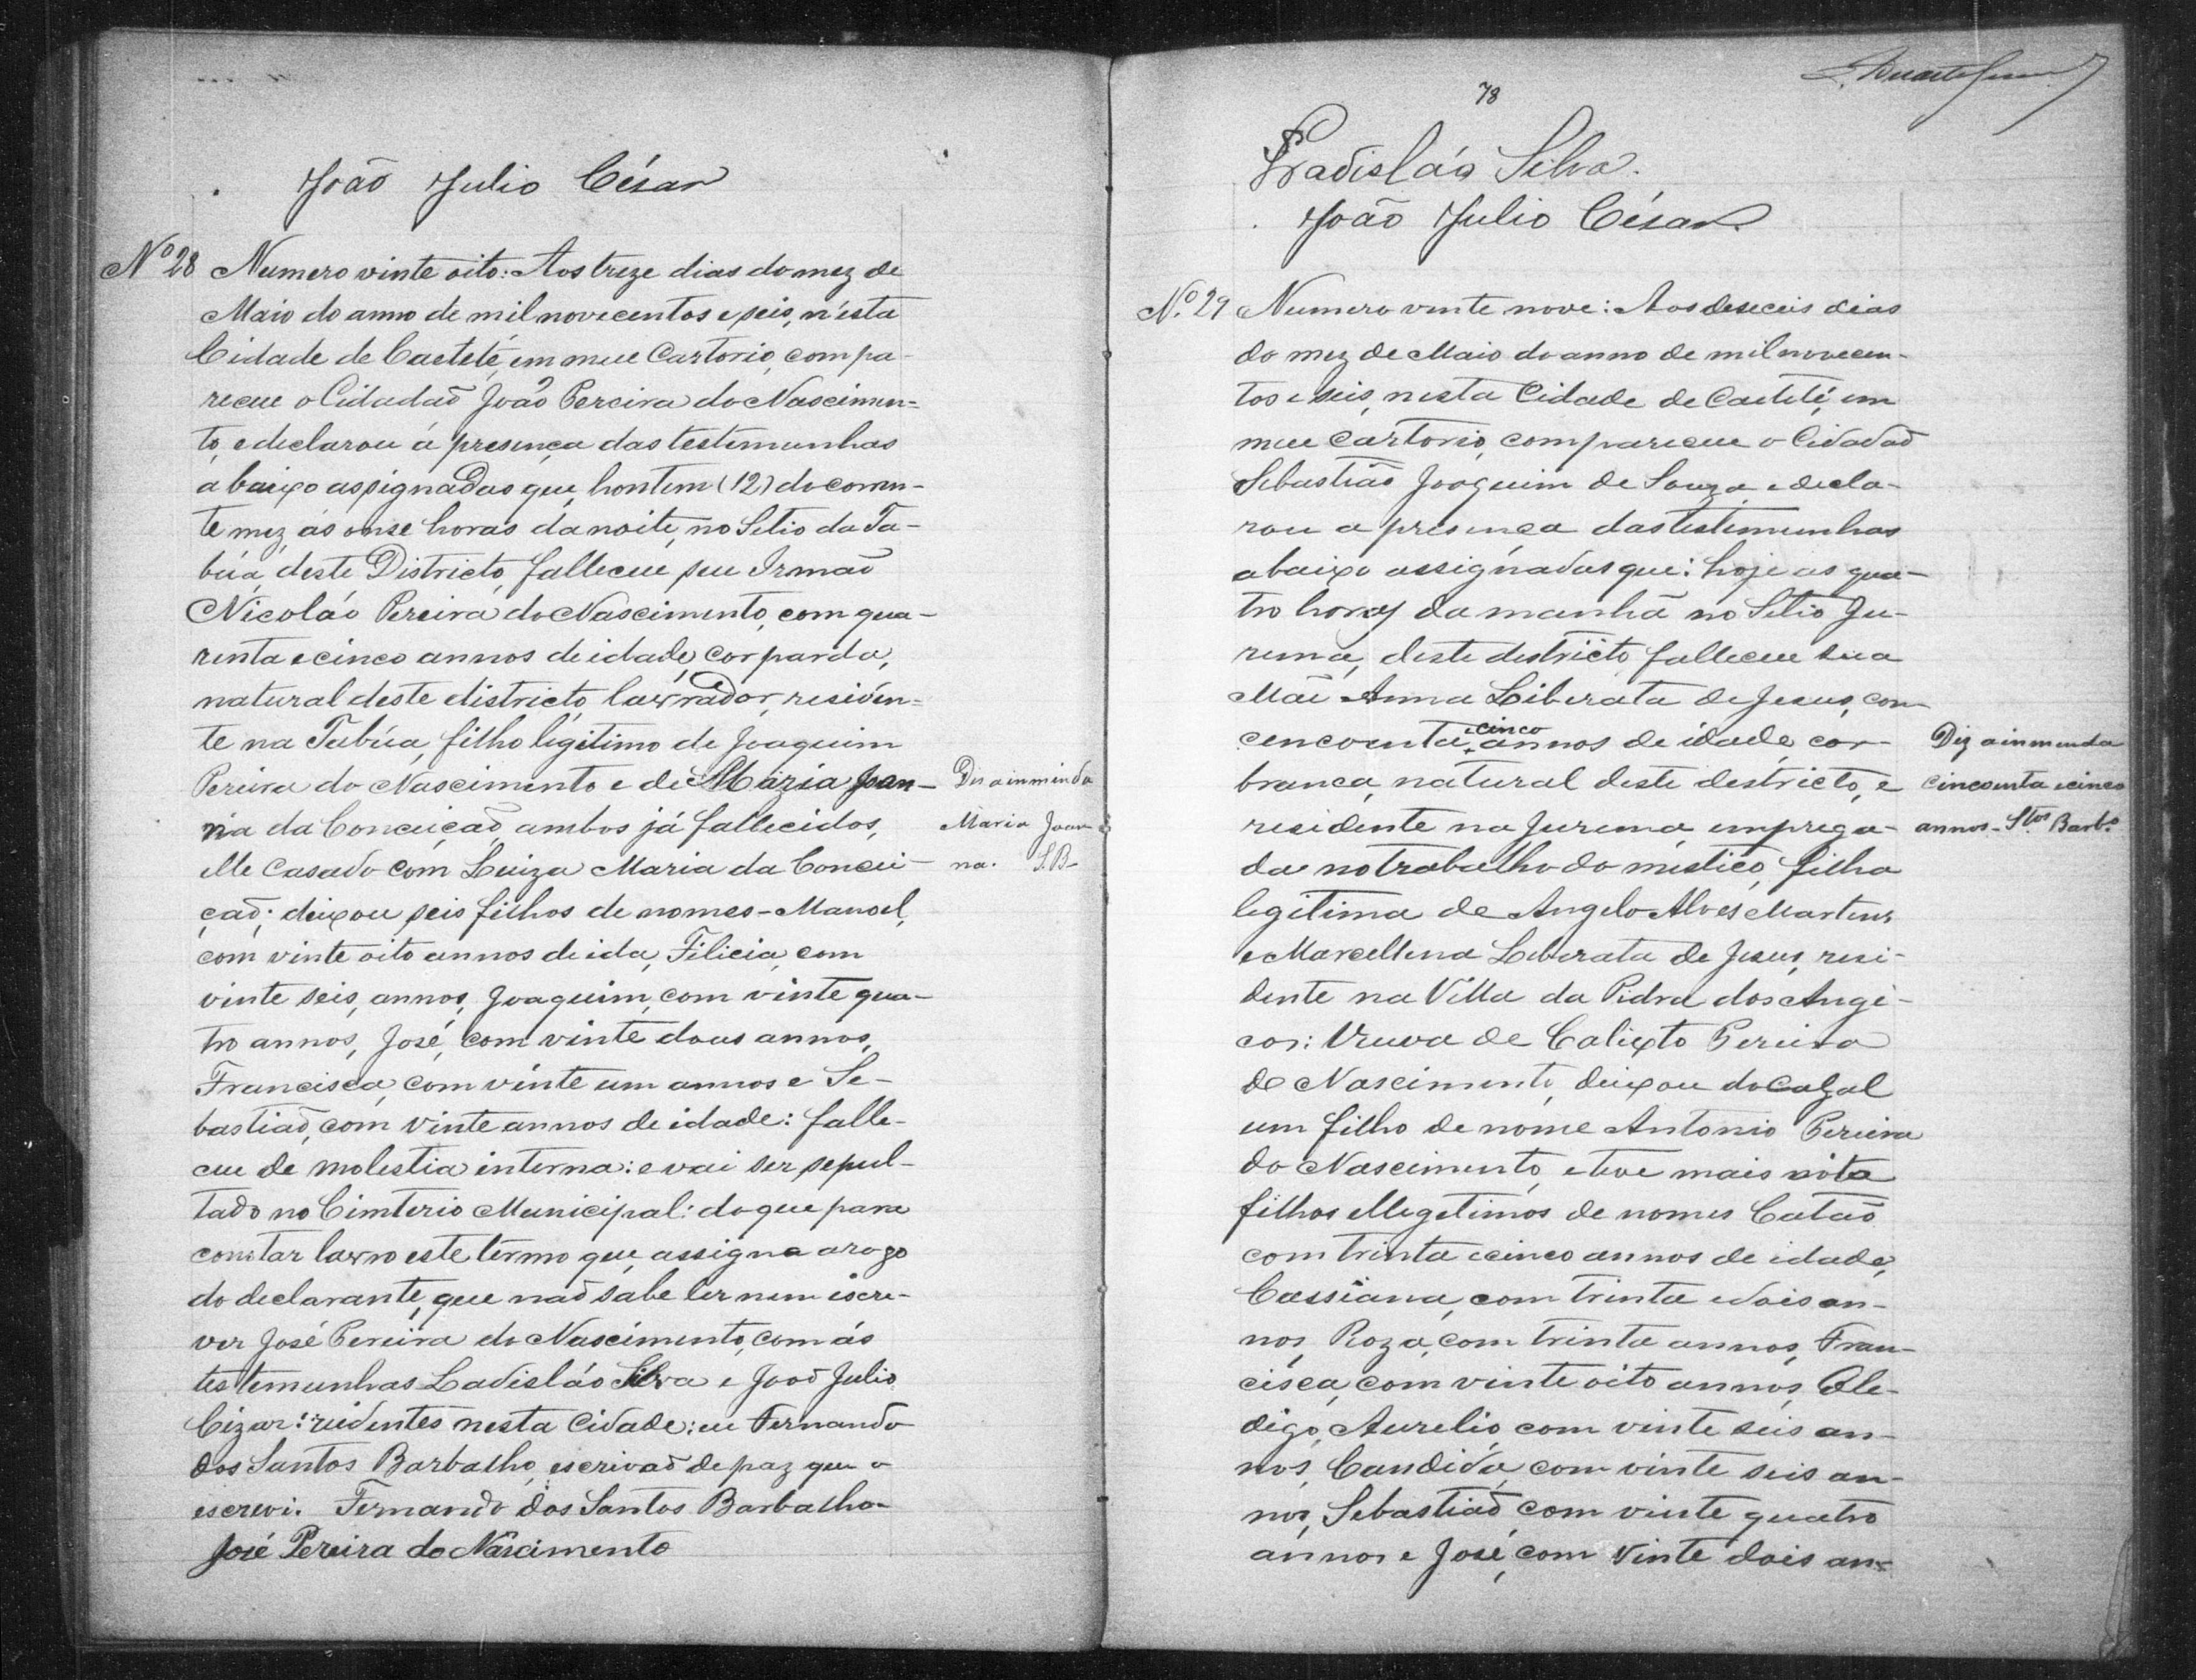 João Julio César
Nº 28 Numero vinte oito: Aos treze dias do mez de
Maio do anno de mil novecentos e seis, n'ésta
Cidade de Caeteté, em meu Cartorio, compa-
receu o Cidadaõ João Pereira do Nascimen=
to, e declarou á presença das testemunhas
abaixo assignadas que, hontem (12) do corren-
te mez, ás onse horas da noite, no Sitio da Ta-
búa, deste Districto, falleceu seu Irmaõ
Nicoláo Pereira do Nascimento, com qua-
renta e cinco annos de idade, cor parda,
natural deste districto, lavrador, residen=
te na Tabúa, filho legitimo de Joaquim
Pereira do Nascimento e de Maria Joan-
na da Conceiçaõ, ambos já fallecidos,
elle casado com Luiza Maria da Concei-
çaõ; deixou seis filhos de nomes - Manoel,
com vinte oito annos de ida, Filicia, com
vinte seis, annos, Joaquim, com vinte qua-
tro annos, José, com vinte dous annos,
Francisca, com vinte um annos e Se-
bastiaõ, com vinte annos de idade: falle-
ceu de molestia interna: e vai ser sepul-
tado no Cimterio Municipal: do que para
constar lavro este termo que, assigna a rogo
do declarante, que naõ sabe ler nem escre-
ver José Pereira do Nascimento, com ás
testemunhas Ladisláo Silva e Joaõ Julio
Cizar: rezidentes nesta Cidade: eu Fernando
dos Santos Barbalho, escrivaõ de paz que o
escrevi. Fernando dos Santos Barbalho
José Pereira do Nascimento
Dis a inminda
Maria Joan
na. S.B-
78
Ladisláo Silva.
João Julio César
Nº. 29 Numero vinte nove: Aos deseceis dias
do mez de Maio do anno de mil novecen-
tos e seis, nesta Cidade de Caeteté, em
meu cartorio, compareceu o Cidadaõ
Sebastiaõ Joaquim de Souza, e decla-
rou a presença das testemunhas
abaixo assignadas que: hoje as qua-
tro horas da manhã no Sitio Ju-
rema, deste districto falleceu sua
Mãe Anna Liberata de Jesus, com
cencoenta e cinco annos de idade, cor
branca, natural deste destricto, e
residente na Jurema, emprega-
da no trabalho do mistico, filha
legitima de Angelo Alves Martins
e Marcellina Leberata de Jesus, resi-
dente na Villa da Pidra dos Angi-
cos: Veuva de Calixto Pereira
do Nascimento, deixou do cazal
um filho de nome Antonio Pereira
do Nascimento, e teve mais oito
filhos Illegetimos de nomes Catão
com trinta e cinco annos de idade,
Cassiana, com trinta e dois an-
nos, Roza, com trinta annos, Fran-
cisca, com vinte oito annos, Ole-
digo, Aurelio, com vinte seis an-
nos, Candida, com vinte seis an-
nos, Sebastiaõ, com vinte quatro
annos e José, com vinte dois an-
Diz a inmenda
cincoenta e cinco
annos - Stos Barbº